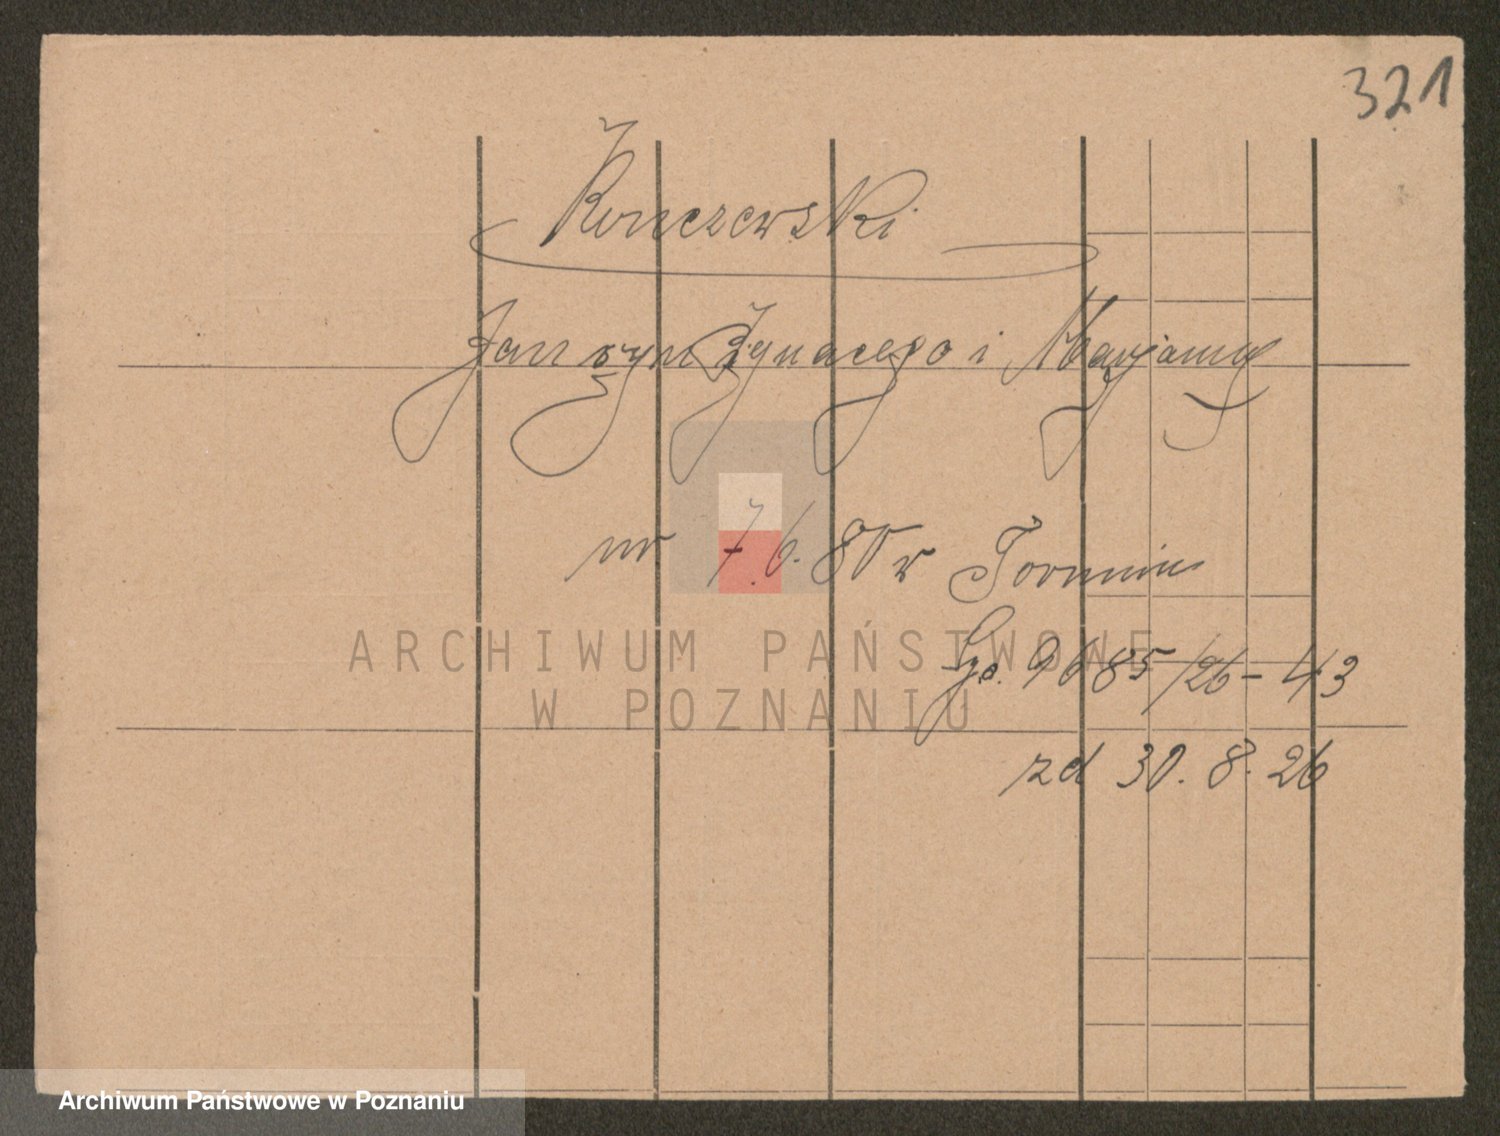 321
Konczewski
Jan syn Ignacego i Marjanny
ur 7.6.80 w Toruniu
9685/26-43
zd 30.8.26
ARCHIWUM PAŃSTWOWE
W POZNANIU
Archiwum Państwowe w Poznaniu